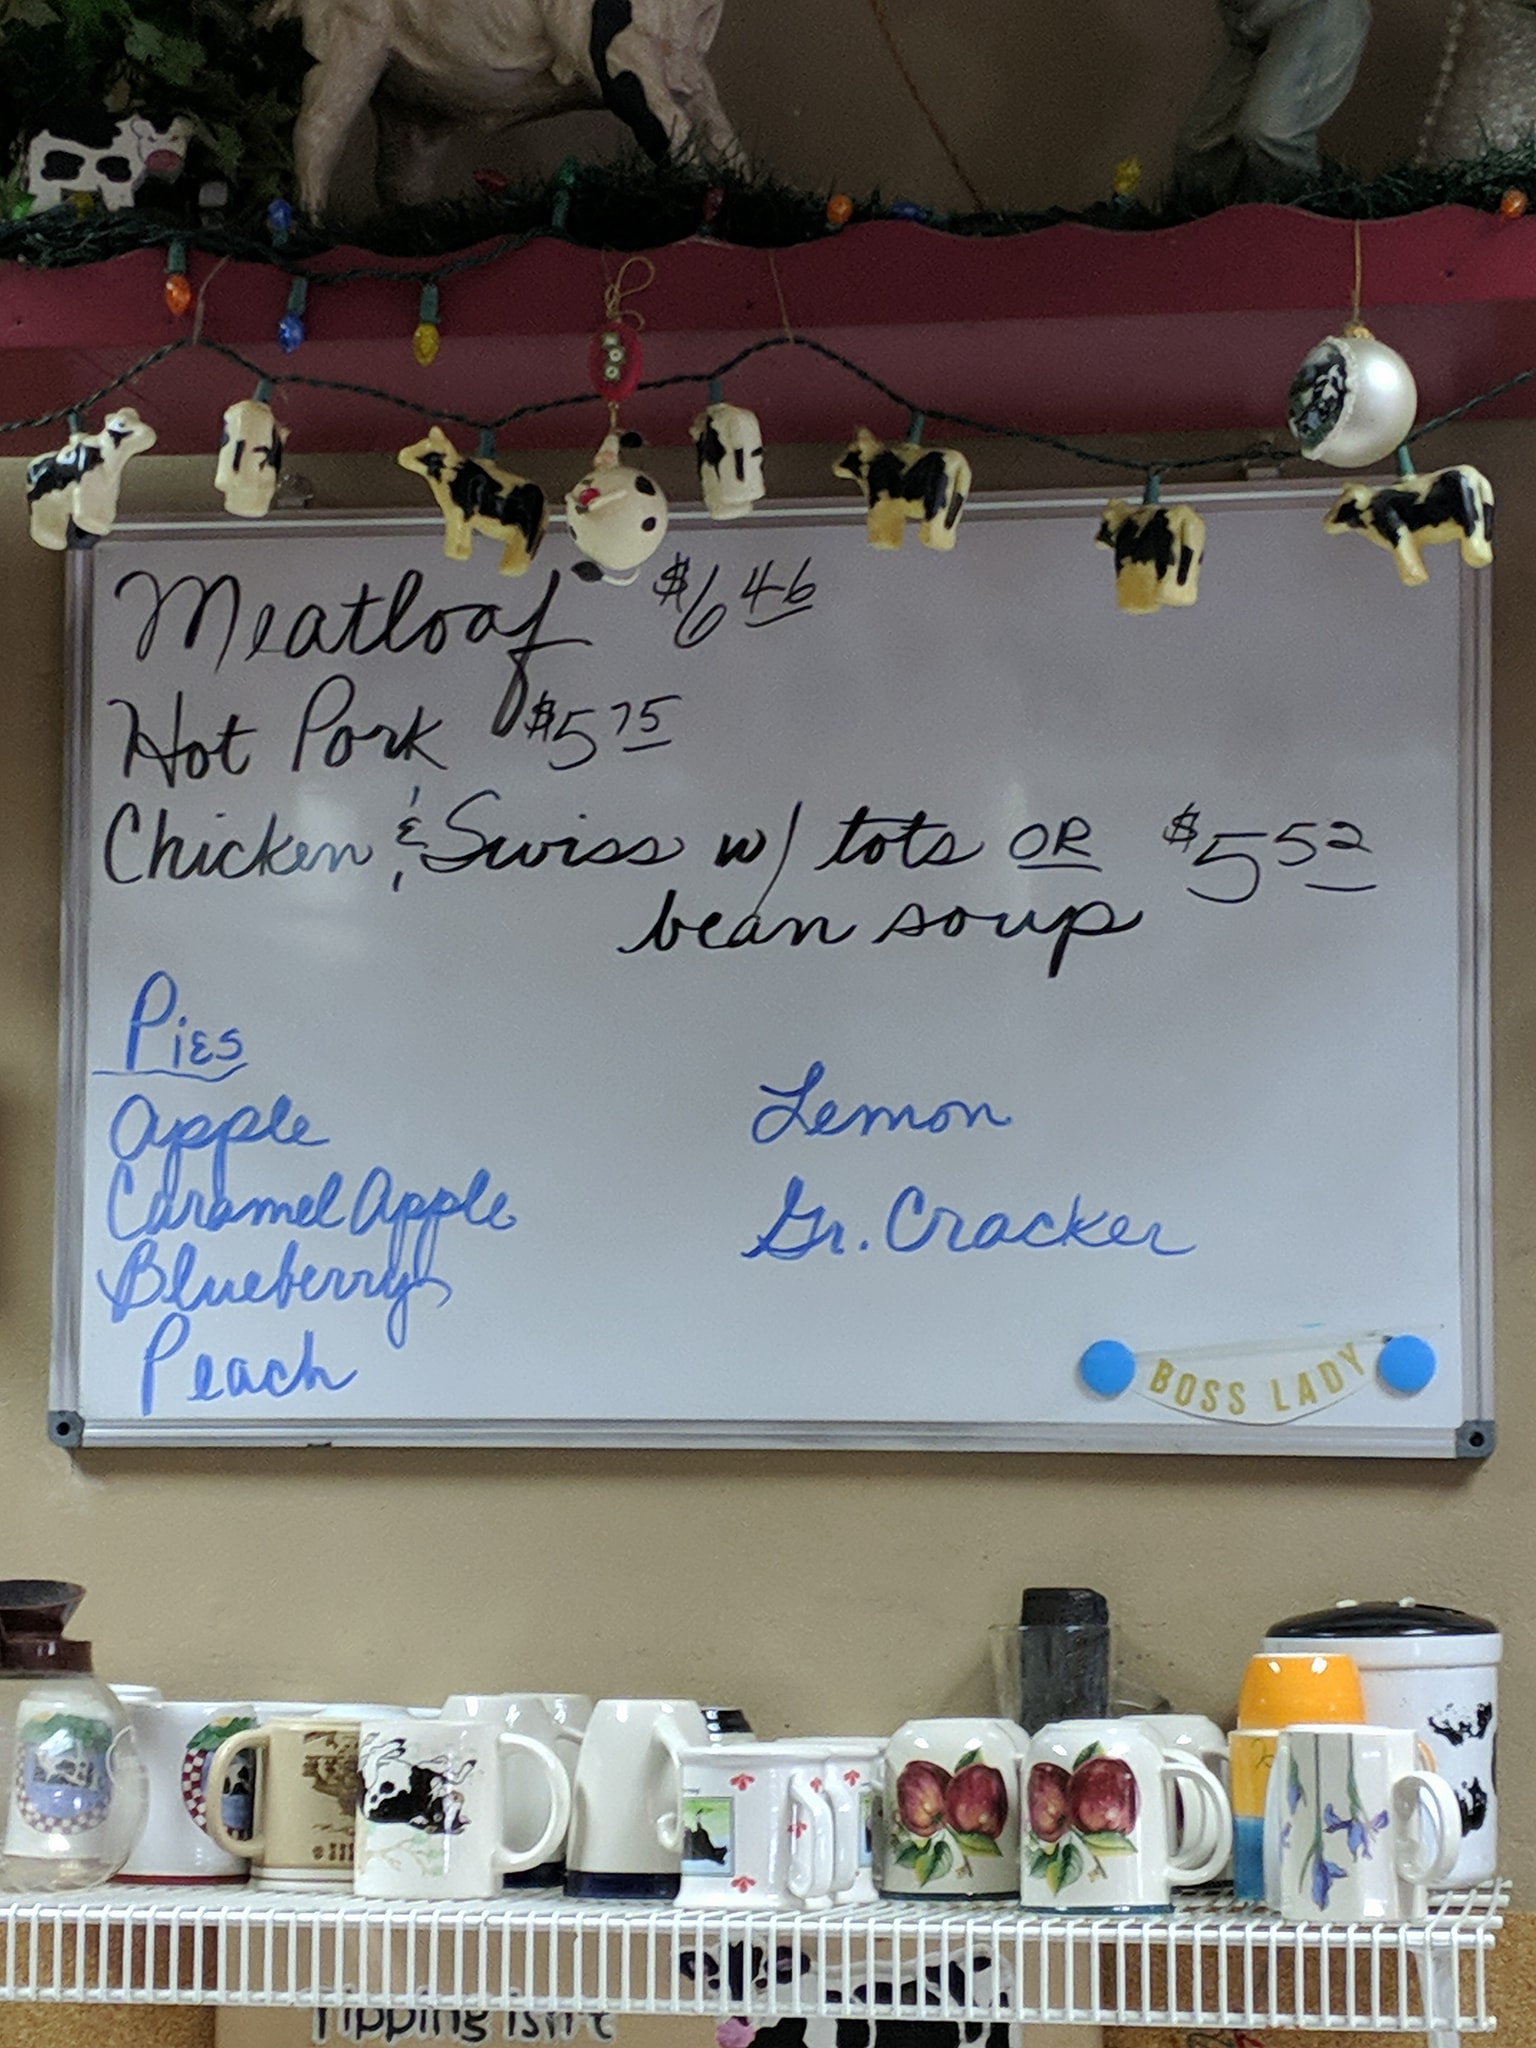 Meatloaf $6 46
Hot Pork $5 75
Chicken & Swiss w/ tots OR $5 52
bean soup
Pies
Apple
Caramel Apple
Blueberry
Peach
Lemon
Gr. Cracker
BOSS LADY
Tipping isn't